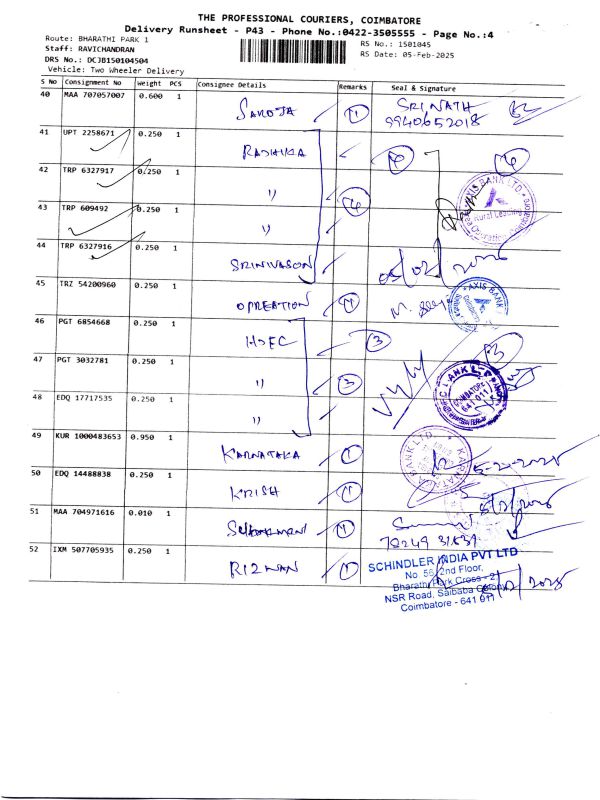 THE PROFESSIONAL COURIERS, COIMBATORE
Delivery Runsheet - P43 - Phone No.:0422-3505555 - Page No.:4
Route: BHARATHI PARK 1
Staff: RAVICHANDRAN
DRS No.: DCJB150104504
Vehicle: Two Wheeler Delivery
RS No.: 1501045
RS Date: 05-Feb-2025
S No Consignment No Weight PCS Consignee Details Remarks Seal & Signature
40 MAA 707057007 0.600 1 SAROJA 1 SRINATH
9940652018
41 UPT 2258671 0.250 1 RADHIKA 4 4
42 TRP 6327917 0.250 1 " 4
43 TRP 609492 0.250 1 "
44 TRP 6327916 0.250 1 SRINIVASON 05/02/2025
AXIS BANK LTD
Rural Lending
45 TRZ 54200960 0.250 1 OPREATION 1
AXIS BANK
46 PGT 6854668 0.250 1 HDFC 3 3
47 PGT 3032781 0.250 1 " 3
COIMBATORE
641 011
48 EDQ 17717535 0.250 1 "
49 KUR 1000483653 0.950 1 KARNATAKA 1 5-2-2025
BANK LTD
50 EDQ 14488838 0.250 1 KRISH 1
51 MAA 704971616 0.010 1 1
52 IXM 507705935 0.250 1 RIZWAN 1
SCHINDLER INDIA PVT LTD
No. 56, 2nd Floor,
Bharathi Park Cross - 2
NSR Road, Saibaba Colony
Coimbatore - 641 011